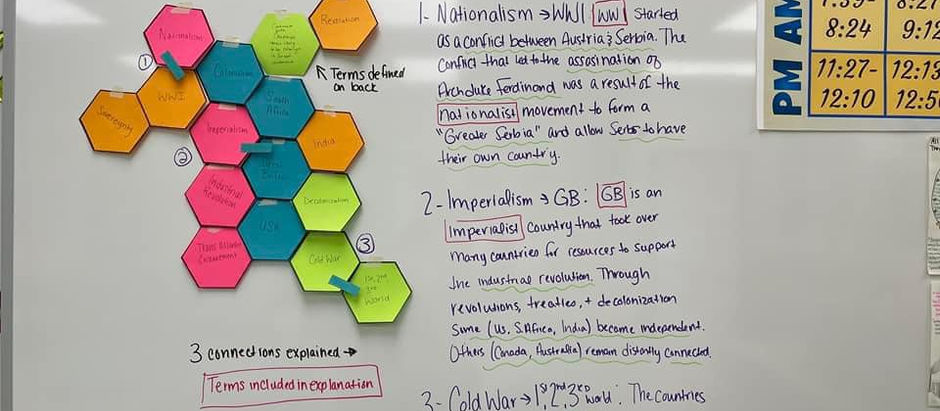 Nationalism
Revolution
Colonialism
WWI
South
Africa
Sovereignty
Imperialism
India
Great
Britain
Industrial
Revolution
Decolonization
USA
Trans Atlantic
Cold War
1st, 2nd
3rd
World
1
2
3
↖ Terms defined
on back
3 connections explained →
Terms included in explanation
1- Nationalism → WWI WW1 started
as a conflict between Austria & Serbia. The
conflict that led to the assasination of
Archduke Ferdinand was a result of the
nationalist movement to form a
"Greater Serbia" and allow Serbs to have
their own country.
2- Imperialism → GB: GB is an
Imperialist Country that took over
many countries for resources to support
the industrial revolution. Through
revolutions, treaties, + decolonization
Some (US, S.Africa, India) became independent.
Others (Canada, Australia) remain distantly connected.
3- Cold War → 1st, 2nd, 3rd World: The Countries
AM
PM
8:24
9:12
11:27-
12:10